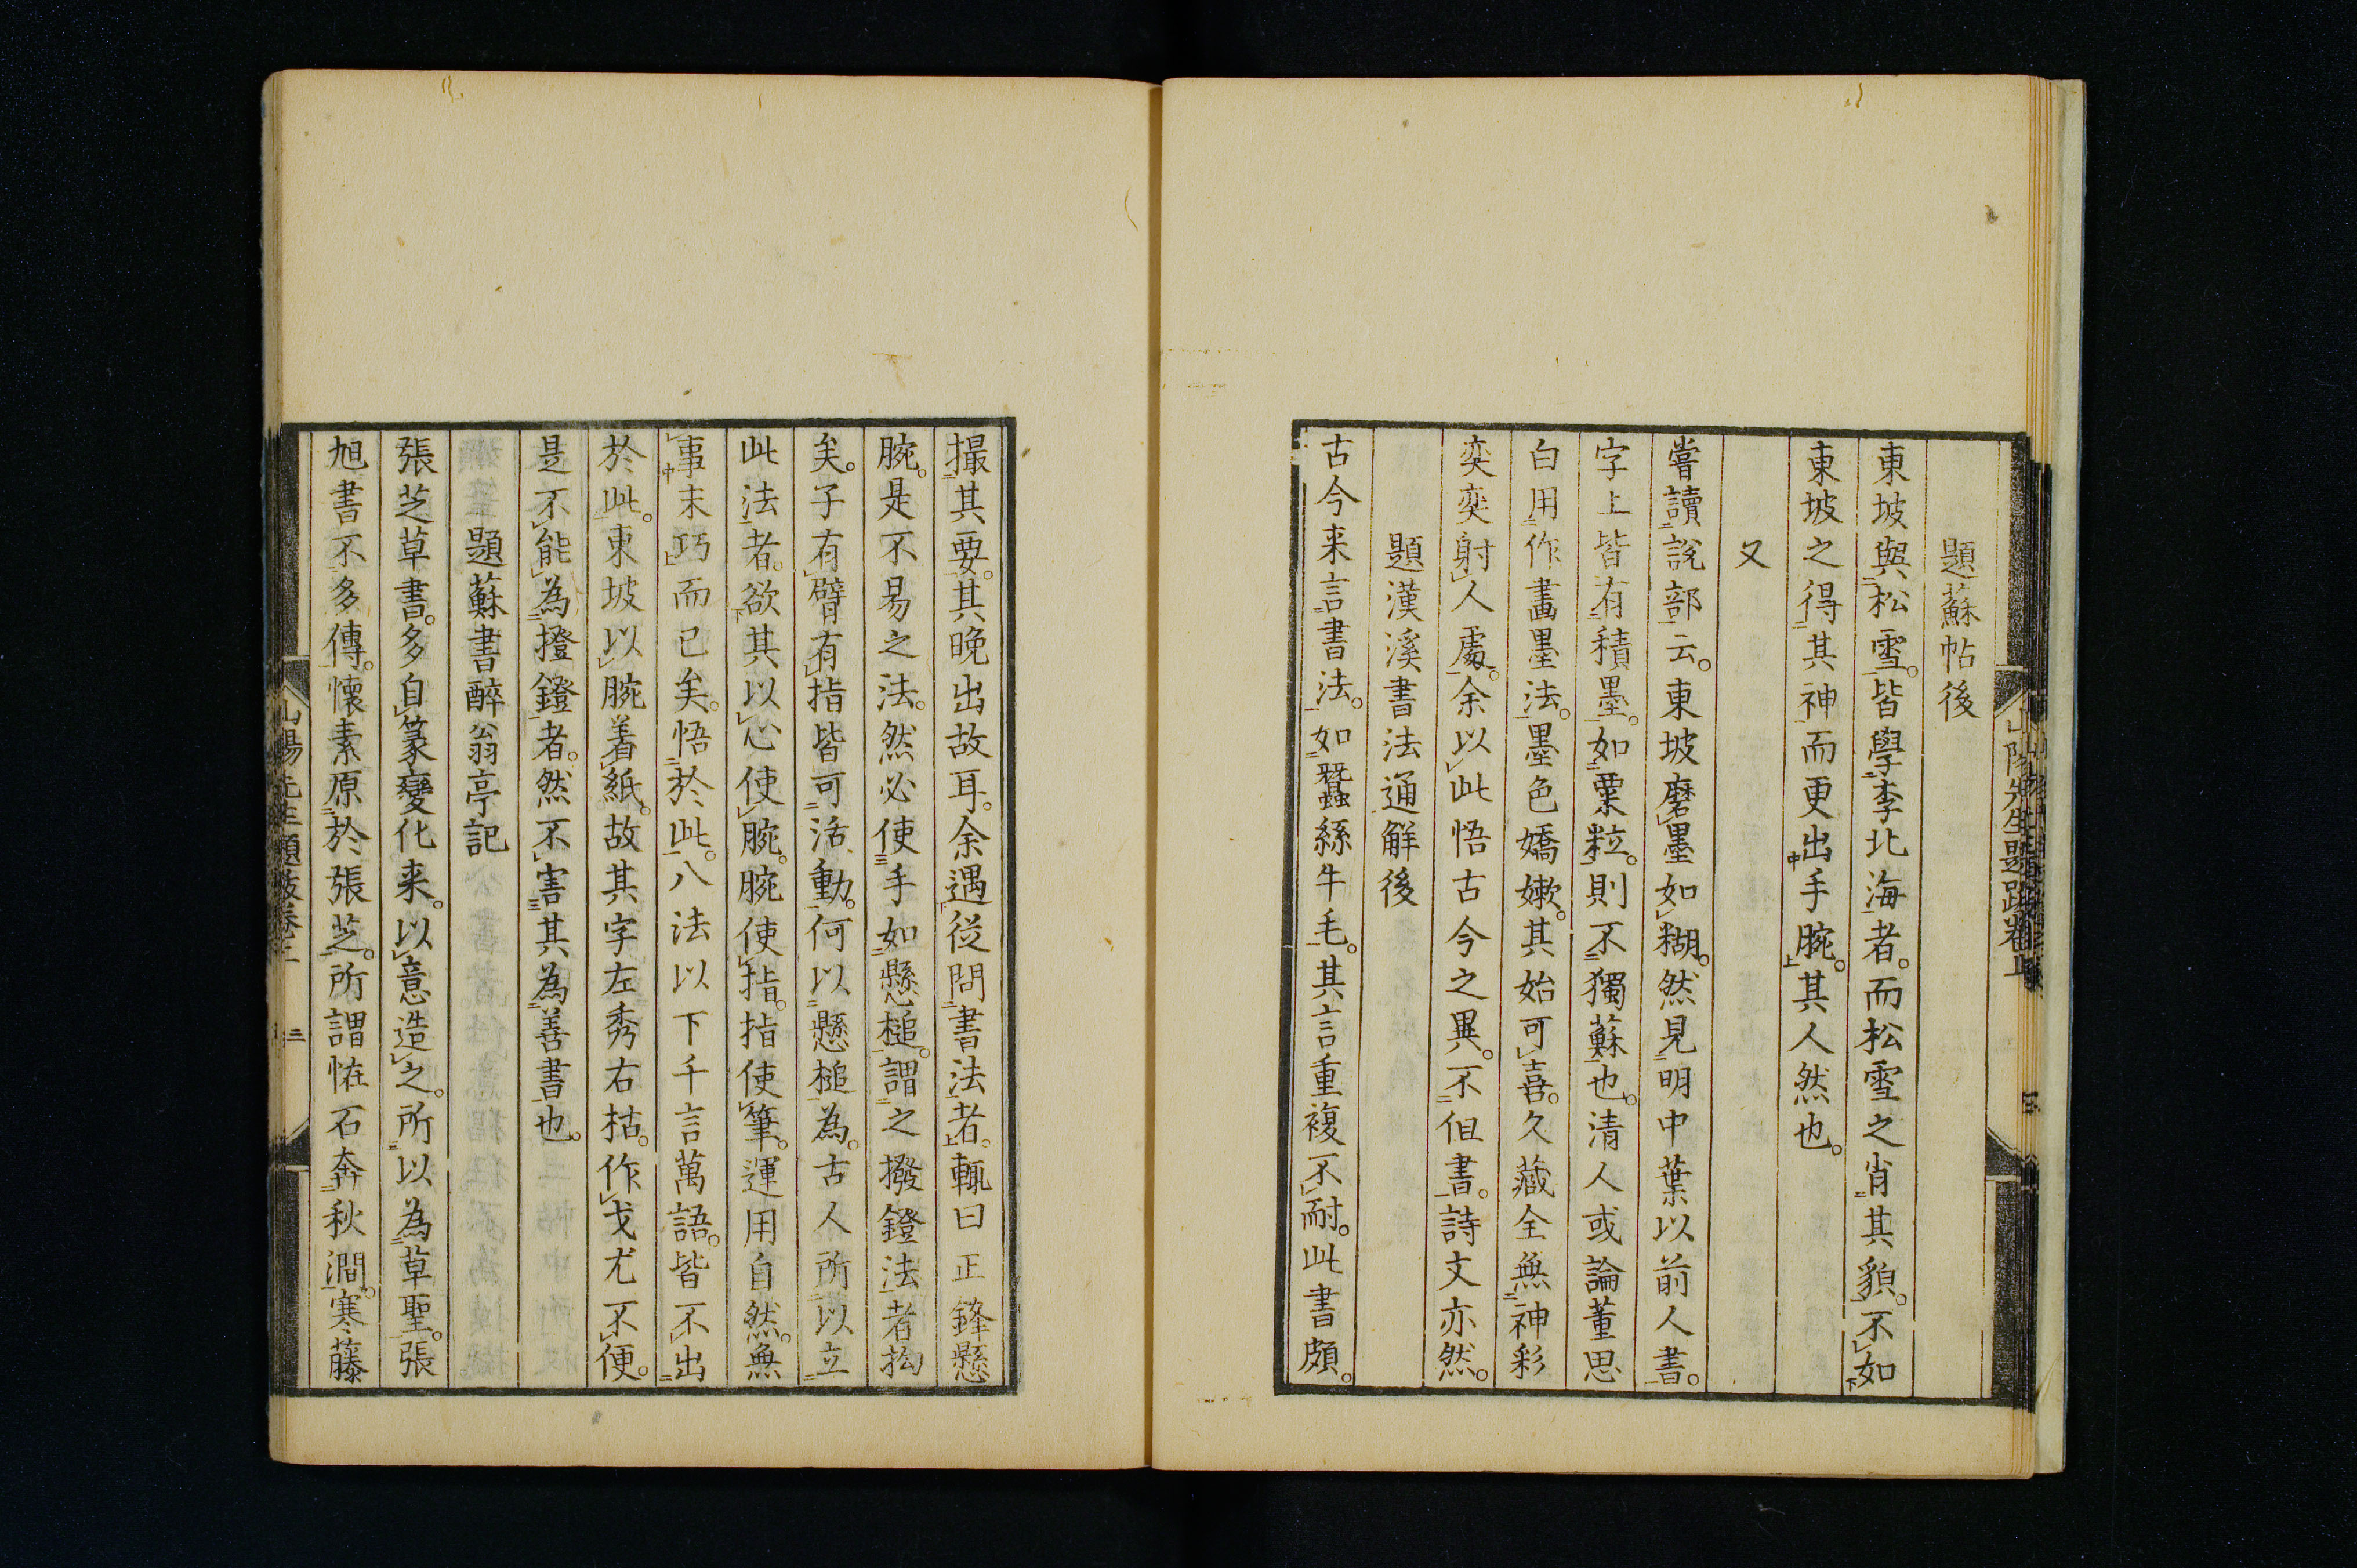 題蘇帖後
東坡與松雪。皆學李北海者。而松雪之肖其貌。不如
東坡之得其神而更出手腕。其人然也。
又
嘗讀說部云。東坡磨墨如糊。然見明中葉以前人書。
字上皆有積墨。如粟粒。則不獨蘇也。清人或論董思
白用作畫墨法。墨色嬌嫩。其始可喜。久藏全無神彩
奕奕射人處。余以此悟古今之異。不但書。詩文亦然。
題漢溪書法通解後
古今来言書法。如蠶絲牛毛。其言重複不耐。此書頗。
山陽先生題跋卷上
三
撮其要。其晚出故耳。余遇從問書法者。輒曰正鋒懸
腕。是不易之法。然必使手如懸槌。謂之撥鐙法者拘
矣。子有臂有指皆可活動。何以懸槌為。古人所以立
此法者。欲其以心使腕。腕使指。指使筆。運用自然。無
事末巧而已矣。悟於此。八法以下千言萬語。皆不出
於此。東坡以腕着紙。故其字左秀右枯。作戈尤不便。
是不能為撥鐙者。然不害其為善書也。
題蘇書醉翁亭記
張芝草書。多自篆變化来。以意造之。所以為草聖。張
旭書不多傳。懷素原於張芝。所謂恠石奔秋澗。寒藤
山陽先生題跋卷上
三